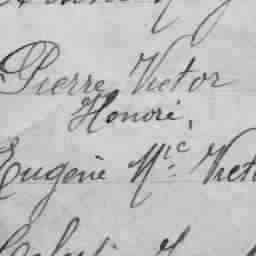 Pierre Victor
Honoré,
Eugène M.ic Vict